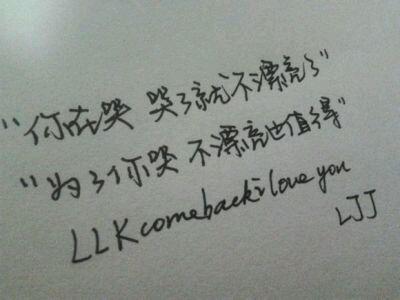 “你在哭 哭了就不漂亮了”
“为了你哭 不漂亮也值得”
LLK come back i love you
LJJ